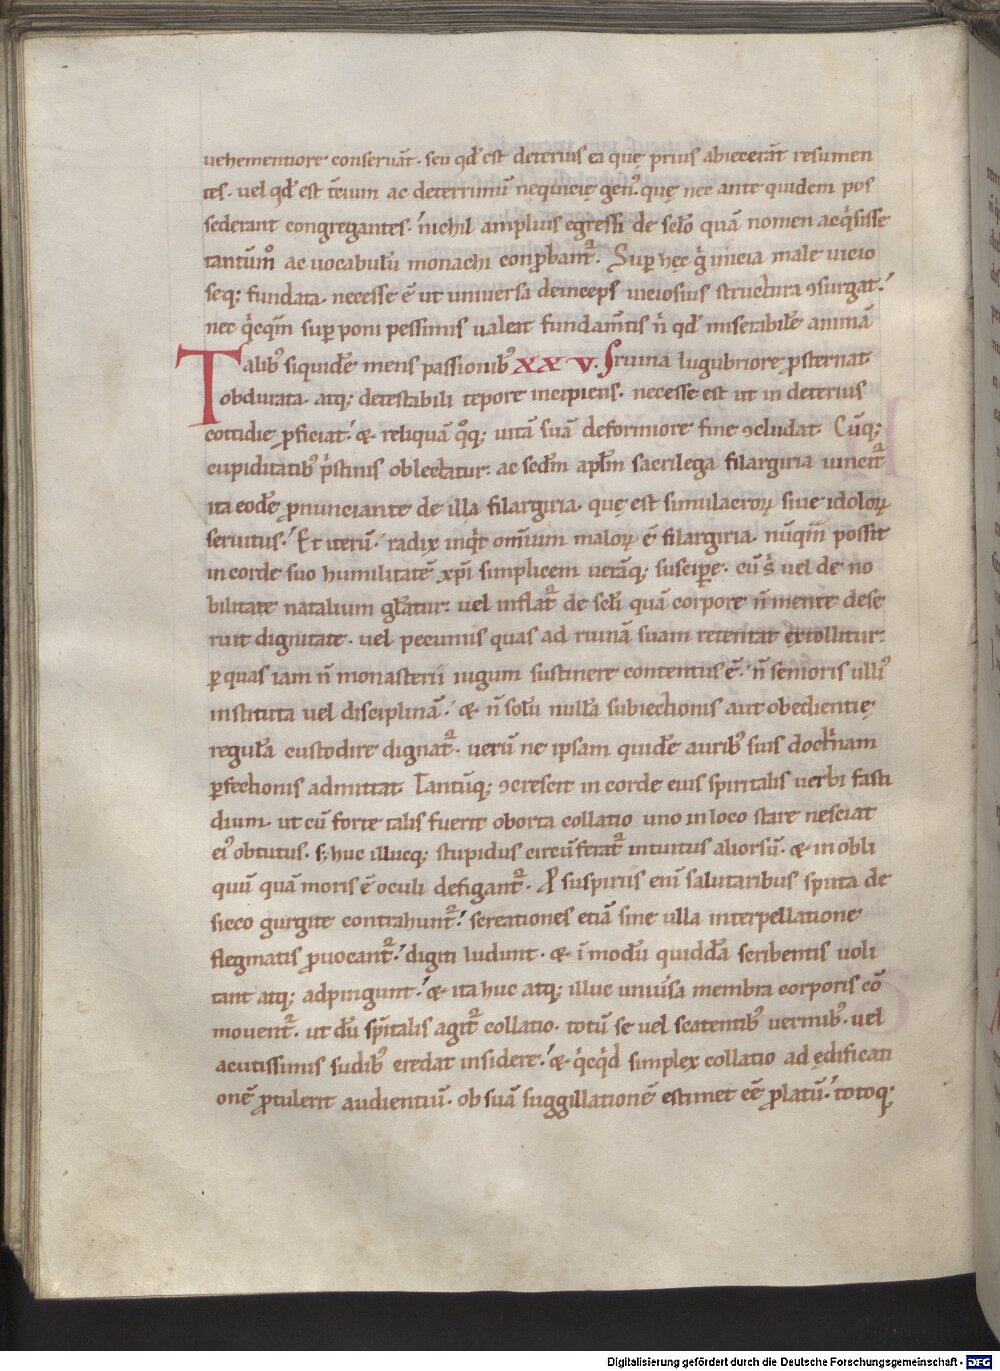 uehementiore conseruāt. seu qd̄ est deterius ea quę prius abiecerāt resumen
tes. uel qd̄ est tc̄ium ac deterrimū nequicię gen᷒. quę nec ante quidem pos
sederant congregantes. nichil amplius egressi de sc̄lo quā nomen acq̇sisse
tantūm̊ ac uocabulū monachi conp̄bant᷑. Sup hęc g̊ inicia male uicio
seq; fundata. necesse ē ut uniuersa deinceps uiciosius structura ꝯsurgat.
nec q̇cq̄m sup poni pessimis ualeat fundam̄tis n̄ qd̄ miserabil̄e animā
Talib᷒ siquidē mens passionib᷒ XXV. ſ ruina lugubriore ꝓsternat
obdurata. atq; detestabili tepore incipiens. necesse est ut in deterius
cottidie ꝓficiat. & reliquā q̊q; uitā suā deformiore fine ꝯcludat. Cūq;
cupiditatib᷒ p̄stinis oblectatur. ac scd̄m apl̄m sacrilega filargiria uincit᷑
ita eodē ꝓnunciante de illa filargiria. que est simulacroꝝ siue idoloꝝ
seruitus. Et iterū. radix inq̇t om̄ium maloꝝ ē filargiria. nūq̄m possit
in corde suo humilitatē xp̄i simplicem uerāq; suscipe. cū s̄ uel de no
bilitate natalium gl̄atur. uel inflat᷑ de sc̄li quā corpore n̄ mente dese
ruit dignitate. uel pecuniis quas ad ruinā suam retentat extollitur.
ꝑ quas iam n̄ monasterii iugum sustinere contentus ē. n̄ senioris ulli᷒
instituta uel disciplinā. & n̄ solū nulla subiectionis aut obedientię
regula custodire dignat᷑. uerū ne ipsam quidē aurib᷒ suis doct̄nam
ꝑfectionis admittat. Tantūq; ꝯcrescit in corde eius spiritalis uerbi fasti
dium. ut cū forte talis fuerit oborta collatio uno in loco stare nesciat
ei᷒ obtutus. s; huc illucq; stupidus circūferat᷑ intuitus aliorsū. & in obli
quū quā moris ē oculi defigant᷑. P̄ suspiriis eni salutaribus sputa de
sicco gurgite contrahunt᷑. screationes etiā sine ulla interpellatione
flegmatis ꝓuocant᷑. digiti ludunt. & ī modū quiddā scribentis uoli
tant atq; adpingunt. & ita huc atq; illuc uniu̇sa membra corporis cō
mouent᷑. ut dū sp̄italis agit᷑ collatio. totū se uel scatentib᷒ uermib᷒. uel
acutissimis sudib᷒ credat insidere. & q̇cq̇d simplex collatio ad ędificati
onē ꝓtulerit audientiū. ob suā suggillationē estimet cē̄ ꝓlatū. totoq;
Digitalisierung gefördert durch die Deutsche Forschungsgemeinschaft - DFG